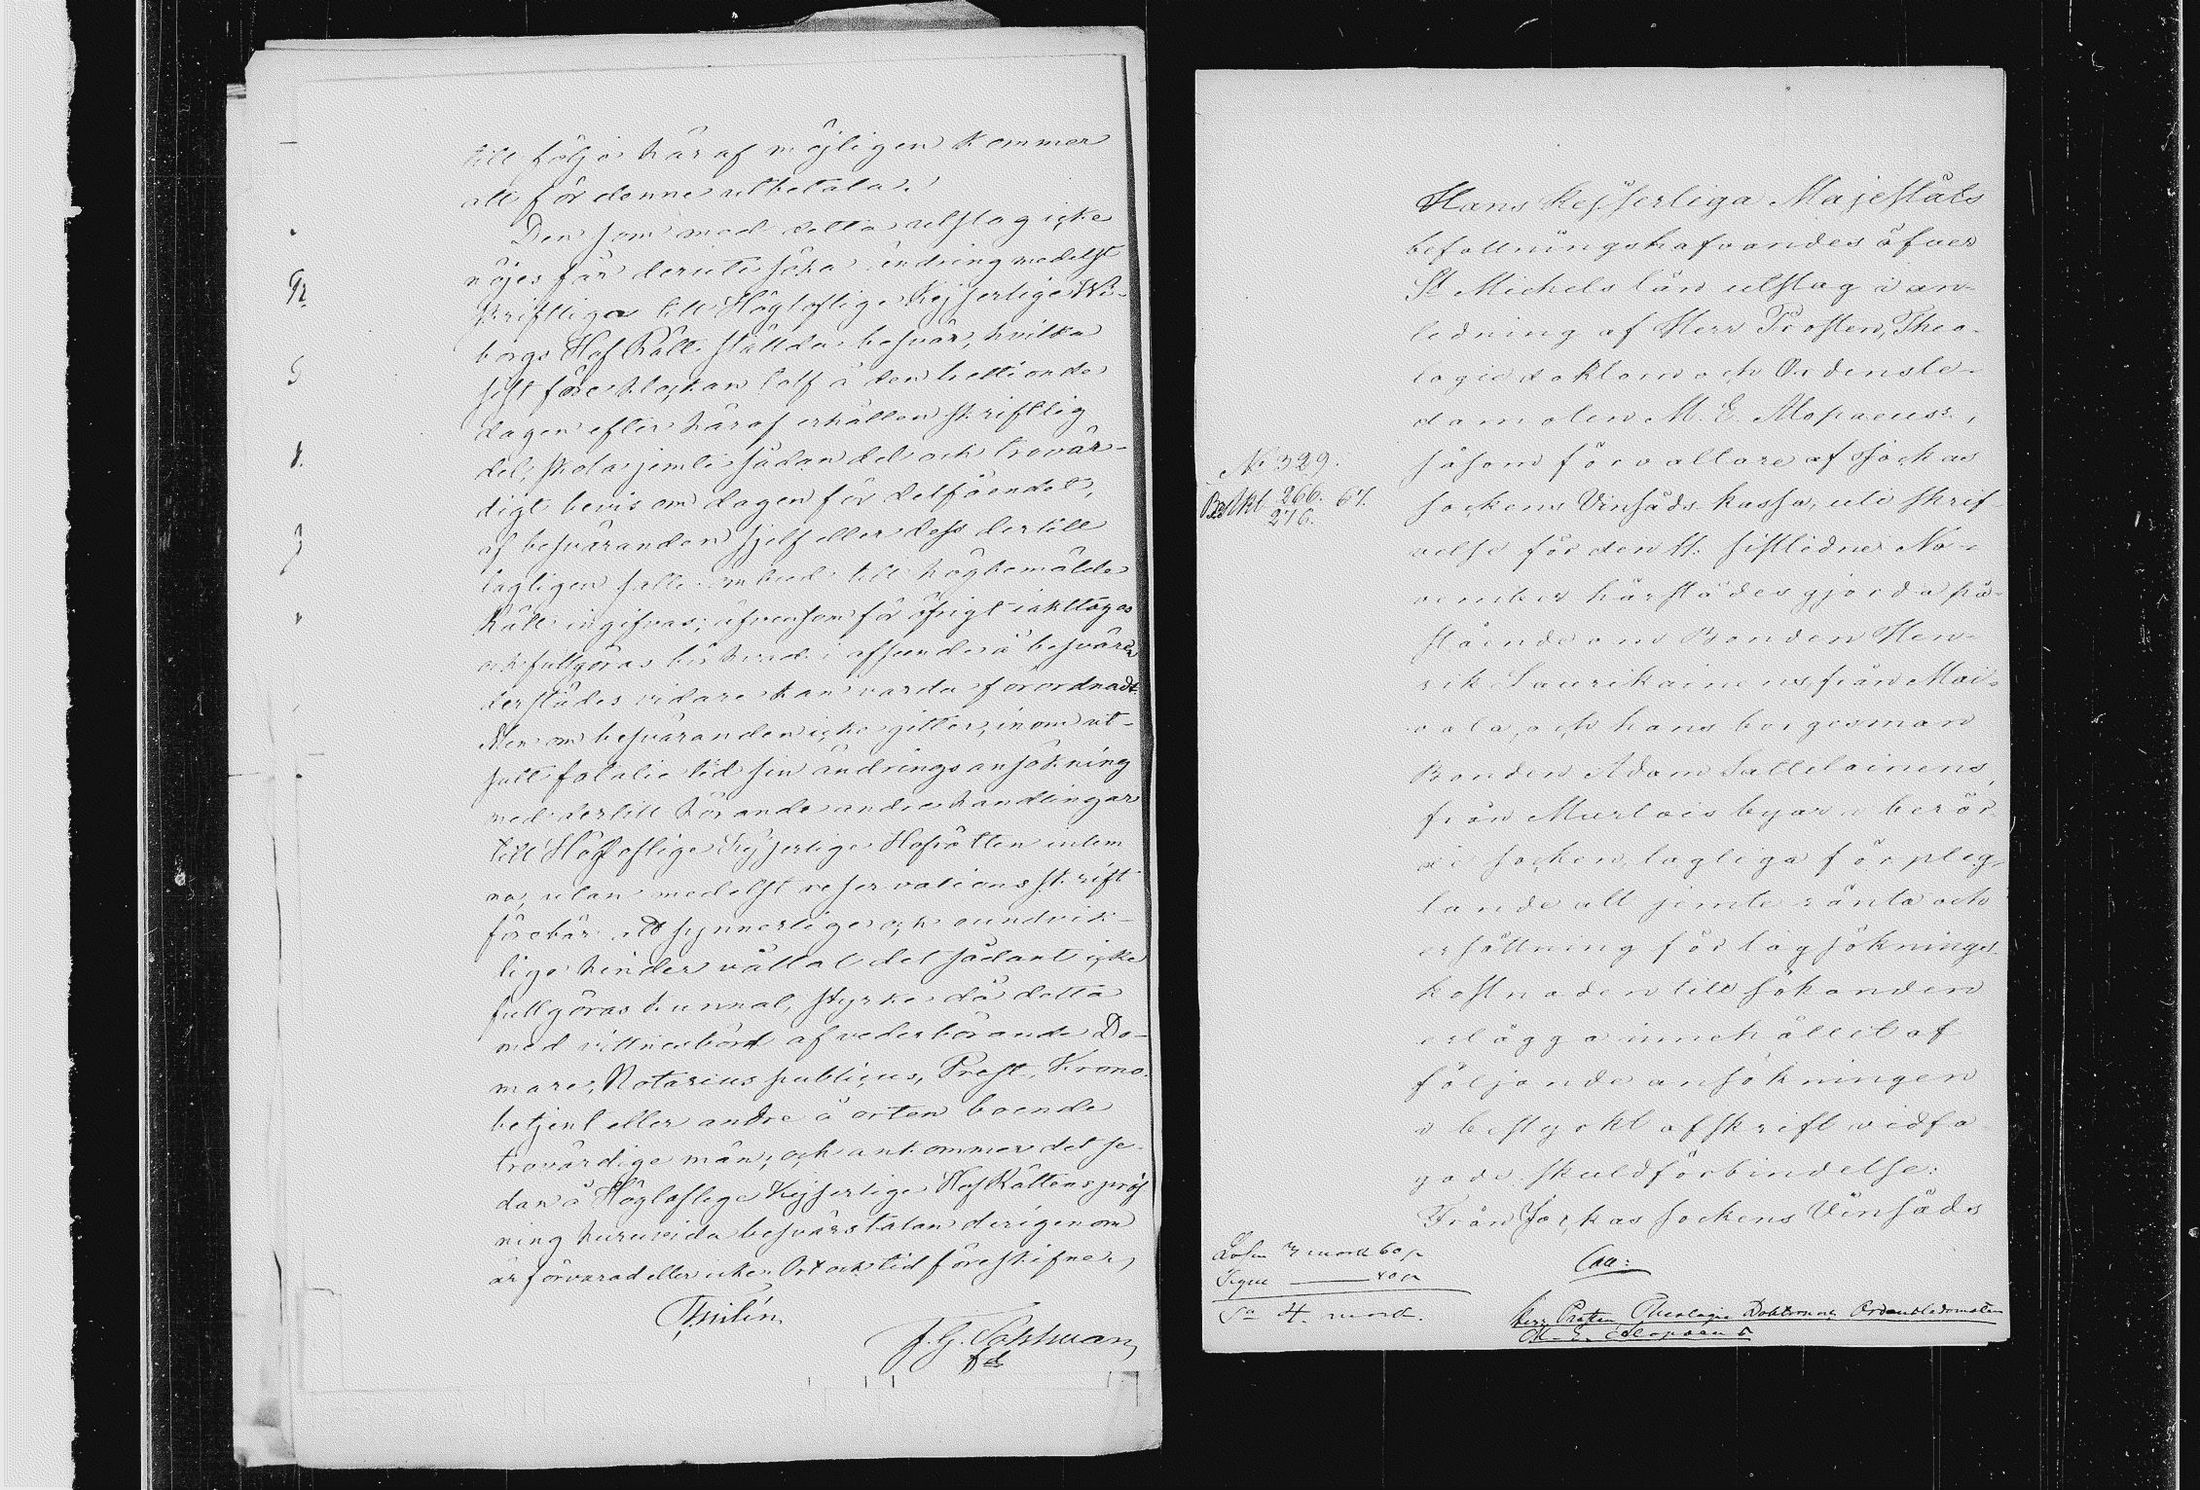 till följe häraf möjligen kommer
att för denne utbetala.
Den som med detta utslag icke
nöjes får deruti söka ändring medelst
skriftliga till Högloflige Kejserlige Wi-
borgs Hof Rätt stälda besvär, hvilka
sist före klockan tolf å den trettionde
dagen efter häraf erhållen skriftlig
del, skola jemte sådan del och trovär-
digt bevis om dagen för delfåendet,
af besväranden sjelf eller dess dertill
lagligen ombud till högbemälde
Rätt ingifvas; äfvensom för öfrigt iakttages
och fullgöras bör hvad i afseende å besvären
derstädes vidare kan varda förordnadt.
Men om besväranden icke gitter, inom ut-
satt fatalie tid sin ändringsansökning
med dertill hörande andra handlingar
till Höglofliga Kejserliga Hofrätten inlem
na, utan medelst reservationsskrift
förebär att synnerliga och oundvik-
liga hinder vållat det sådant icke
fullgöras kunnat, styrke då detta
med vittnesbörd af vederbörande Do-
mare, Notarius publicus, Prest, Krono-
betjent eller andre å orten boende
trovärdige män; och ankommer det se-
dan å Höglofliga Kejserliga Hof Rättens pröf
ning huruvida besvärstalan derigenom
är förvarad eller icke. Ort och tid föreskifne,
Hans Kejserliga Majestäts
befallningshafvandes öfver
St Michels län utslag i an-
ledning af Herr Prosten, Theo-
logie doktorn och Ordensle-
damoten M. E. Alopaeus,
såsom förvaltare af Jockas
sockens Vinsäds kassa, uti skrif-
velse för den 11. sistlidne No-
vember härstädes gjorda på-
stående om Bonden Hen-
rik Laurikainens från Mai-
vala, och hans borgesman
Bonden Adam från byar i berör-
de socken, lagliga förplig-
tande att jemte ränta och
ersättning för lagsöknings-
kostnaden till sökanden
erlägga innehållet af
följande ansökningen
i bestyrkt afskrift vidfo-
gade skuldförbindelse:
Från Jockas sockens Vinsäds
No 329.
266. 67.
276.
Lösen 3 mark 60 p
40 p
Sa 4. mark.
Herr Prosten, Theologie Doktorn och Ordensledamoten
M. E. Alopaeus